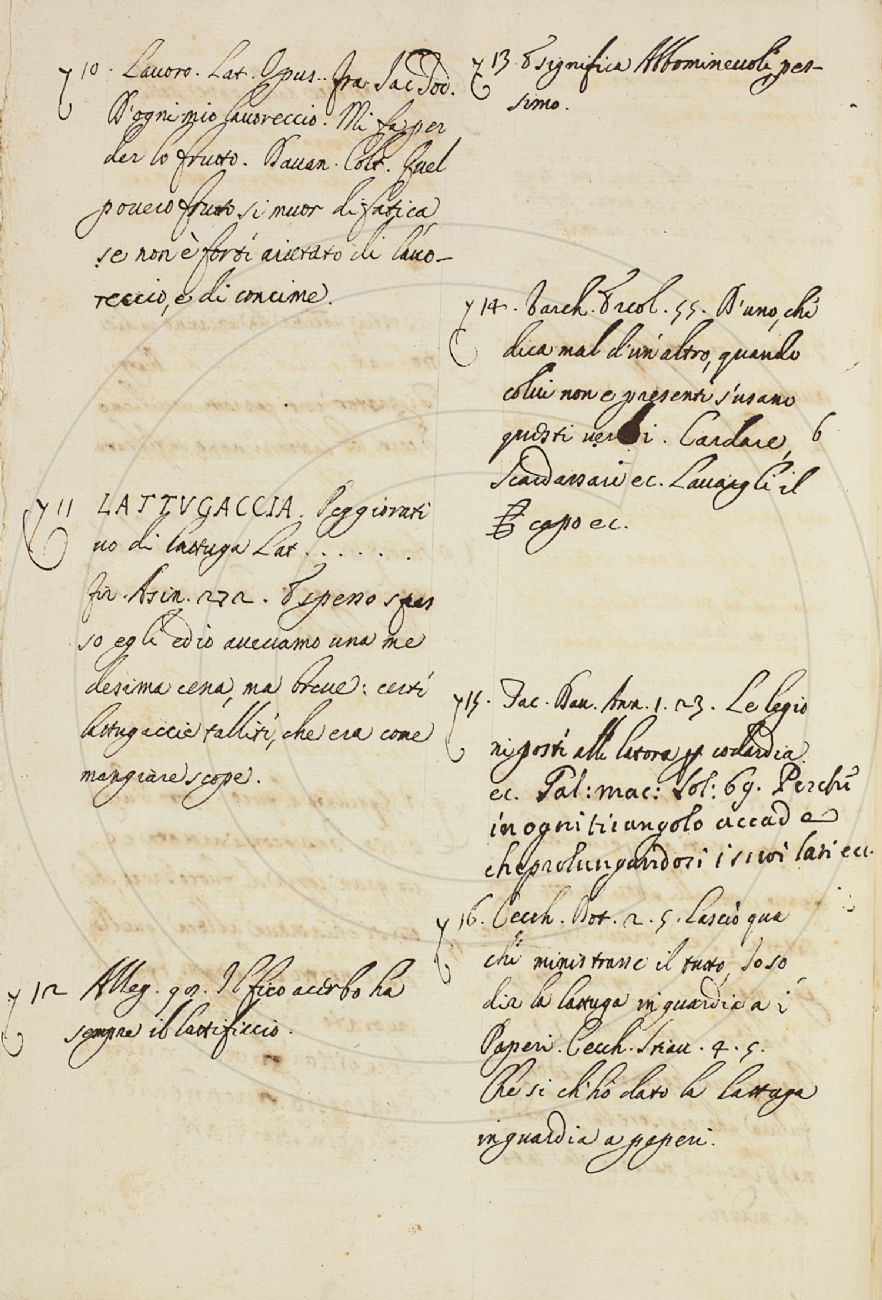 10. Lavoro. Lat. Opus.. fra Iac. Tod.
D'ogni mio lavoreccio. Mi fa per
der lo frutto. Davan. Colt. Quel
povero frutto si muor di fatica
se non è forti aiutato di lavo-
reccio, e di concime.
11 LATTVGACCIA. Peggiorati
vo di lattuga Lat. . . . . .
fir. Asin. 272. E spesso spes
so egli ed io avevamo una me
desima cena, ma breve: certi
lattugaccie tallite, che era come
mangiare scope.
12 Alleg. 92. Il fico acerbo ha
sempre il lattificcio.
13. E significa Abbominevole, pes-
simo.
14. Varch. Ercol. 55. D'uno, che
dica mal d'un'altro, quando
colui non è presente s'usano
questi verbi. Cardare, 6
Scardassare ec. Lavargli il
capo ec.
15. Tac. Dav. Ann. 1. 23. Le legio
ni poste alle latora p codardia.
ec. Gal: mac: Sol: 69. Perchè
in ogni triangolo accade
che prolungandosi i suoi lati ec.
16. Cecch. Dot. 2. 5. Lasciò qua
chi ministrasse il tutto, So so
diè la lattuga in guardia a i
Paperi. Cecch. Stiav. 4. 5.
Che si ch'hò dato la lattuga
in guardia a paperi.